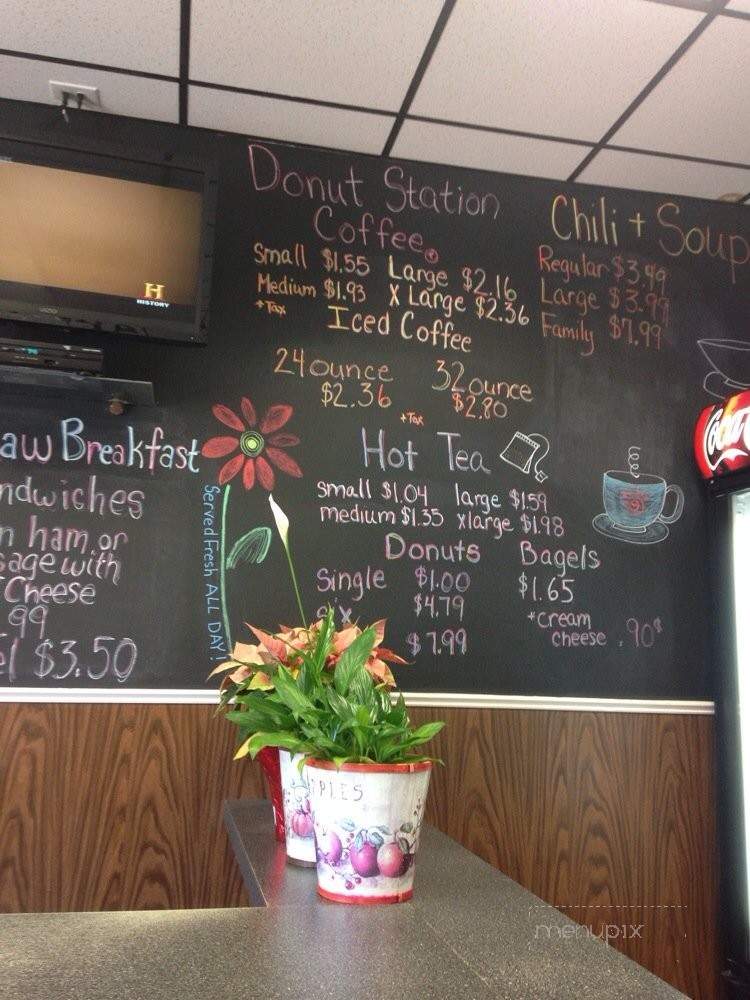 Donut Station
Coffee
Small $1.55 Large $2.16
Medium $1.93 X Large $2.36
+Tax
Iced Coffee
24 ounce 32 ounce
$2.36 $2.80
+Tax
Hot Tea
small $1.04 large $1.59
medium $1.35 xlarge $1.98
Donuts
Single $1.00
six $4.79
$7.99
Bagels
$1.65
+cream
cheese .90¢
Chili + Soup
Regular $3.49
Large $3.99
Family $7.99
H
HISTORY
aw Breakfast
ndwiches
n ham or
sage with
Cheese
99
el $3.50
Served Fresh ALL DAY!
Coca
PLES
menupix